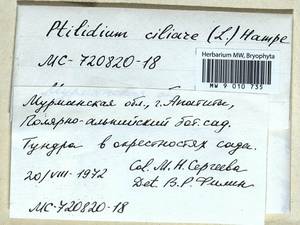 Ptilidium ciliare (L.) Hampe
МС-720820-18
Herbarium MW, Bryophyta
MW 9 010 735
Мурманская обл., г. Апатиты,
Полярно-альпийский бот. сад.
Тундра в окрестностях сада.
20/VIII-1972
Col. М.Н. Сергеева
Det. В.Р. Филин
МС-720820-18